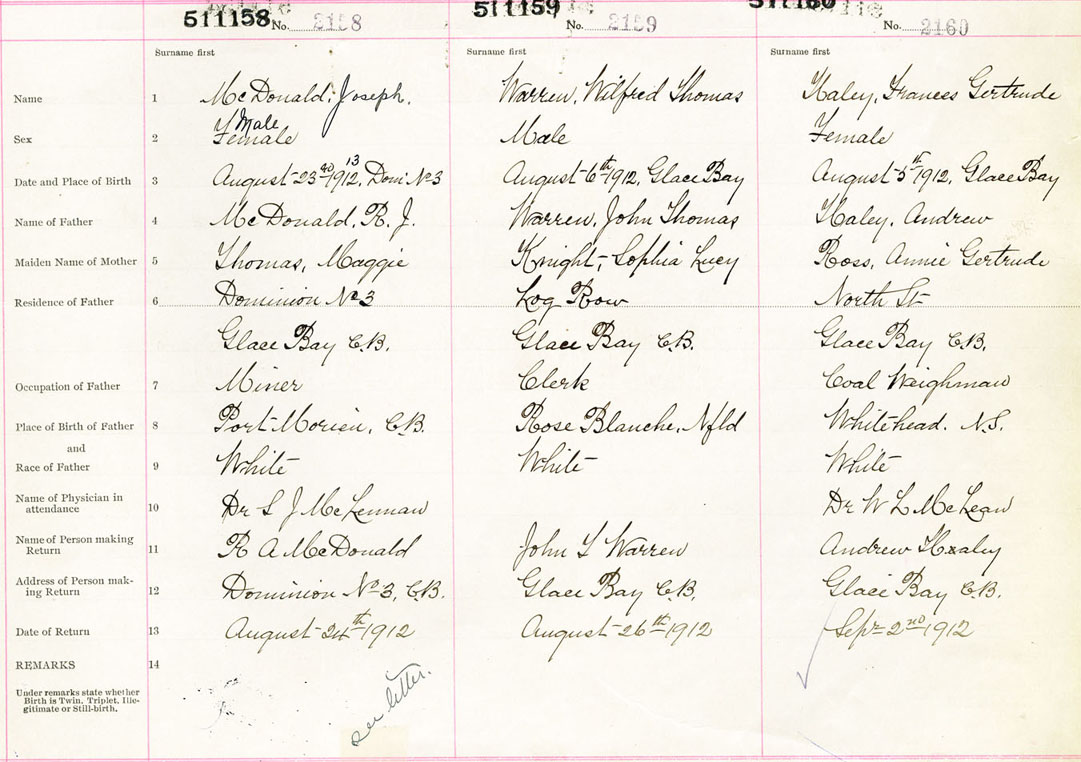 511158 No. 2158 511159 No. 2159 511160 No. 2160
Surname first Surname first Surname first
Name 1 McDonald, Joseph. Warren, Wilfred Thomas Haley, Frances Gertrude
Male
Sex 2 Female Male Female
13
Date and Place of Birth 3 August 23rd 1912, Dom. No 3 August 6th 1912, Glace Bay August 5th 1912, Glace Bay
Name of Father 4 McDonald, R. J. Warren, John Thomas Haley, Andrew
Maiden Name of Mother 5 Thomas, Maggie Knight, Sophia Lucy Ross, Annie Gertrude
Residence of Father 6 Dominion No 3 Log Row North St
Glace Bay C.B. Glace Bay C.B. Glace Bay C.B.
Occupation of Father 7 Miner Clerk Coal Weighman
Place of Birth of Father 8 Port Morien, C.B. Rose Blanche, Nfld Whitehead. N.S.
and
Race of Father 9 White White White
Name of Physician in
attendance 10 Dr S J McLennan Dr W L McLean
Name of Person making
Return 11 R A McDonald John T Warren Andrew Haley
Address of Person mak-
ing Return 12 Dominion No 3, C.B. Glace Bay C.B. Glace Bay C.B.
Date of Return 13 August 24th 1912 August 26th 1912 Sepr 2nd 1912
REMARKS 14
Under remarks state whether
Birth is Twin, Triplet, Ille-
gitimate or Still-birth.
see letter.